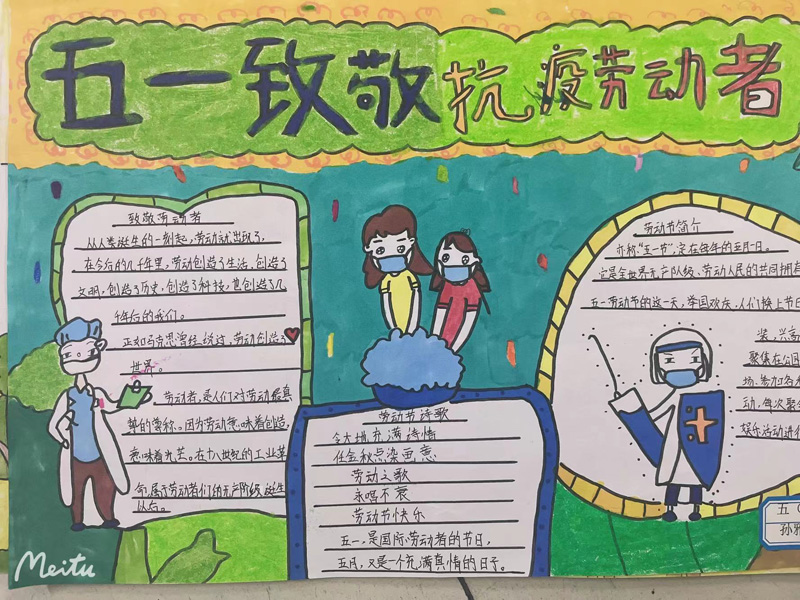 五一致敬抗疫劳动者
致敬劳动者
从人类诞生的一刻起，劳动就出现了，
在今后的几千年里，劳动创造了生活，创造了
文明，创造了历史，创造了科技，更创造了几
千年后的我们。
正如马克思曾经说过，劳动创造了
世界。
劳动者，是人们对劳动最真
挚的尊称。因为劳动意味着创造，
意味着光芒。在十八世纪的工业革
命，属于劳动者们的无产阶级诞生
以后。
劳动节诗歌
令大地充满诗情
任金秋点染画意
劳动之歌
永唱不衰
劳动节快乐
五一，是国际劳动者的节日，
五月，又是一个充满真情的日子。
劳动节简介
亦称"五一节"，定在每年的五月一日。
它是全世界无产阶级、劳动人民的共同拥有
五一劳动节的这一天，举国欢庆，人们换上节日
装，兴高
聚集在公园
场，参加各
动，每次聚会
娱乐活动进行
五
孙雅
Meitu